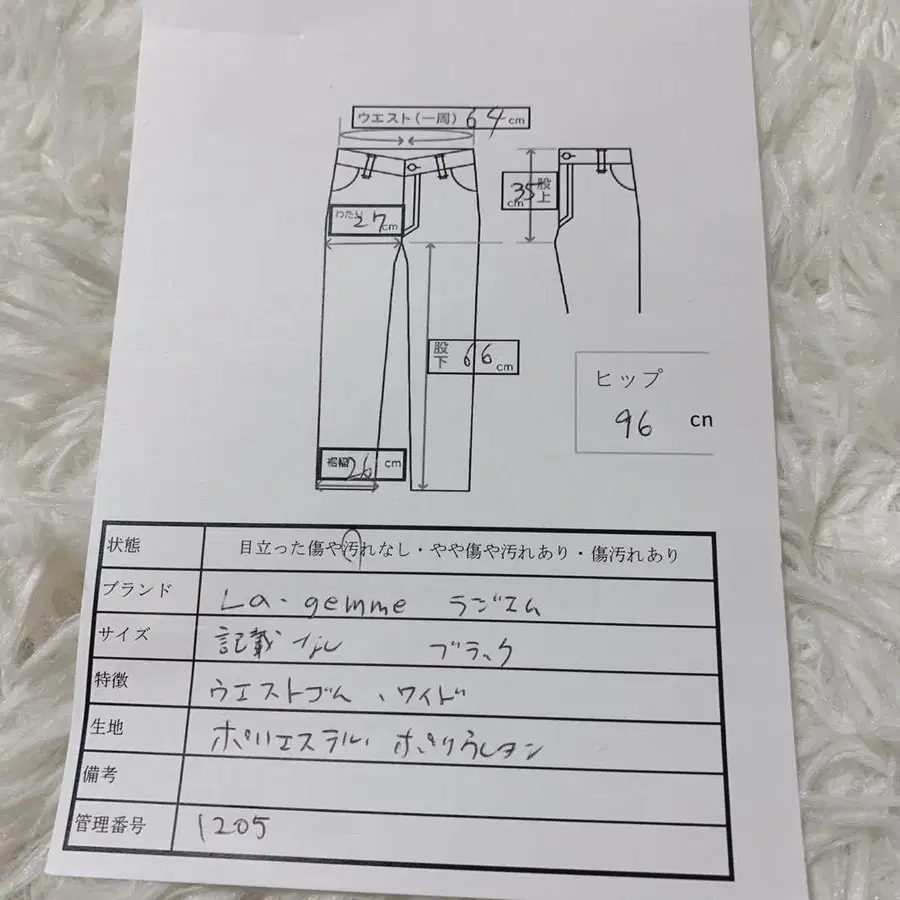 ウエスト(一周) 64 cm
35 股上
cm
わたり 27 cm
股下 66 cm
ヒップ
96 cn
裾幅 26 cm
状態 目立った傷や汚れなし・やや傷や汚れあり・傷汚れあり
ブランド La・gemme ラジエム
サイズ 記載なし ブラック
特徴 ウエストゴム、ワイド
生地 ポリエステル、ポリウレタン
備考
管理番号 1205